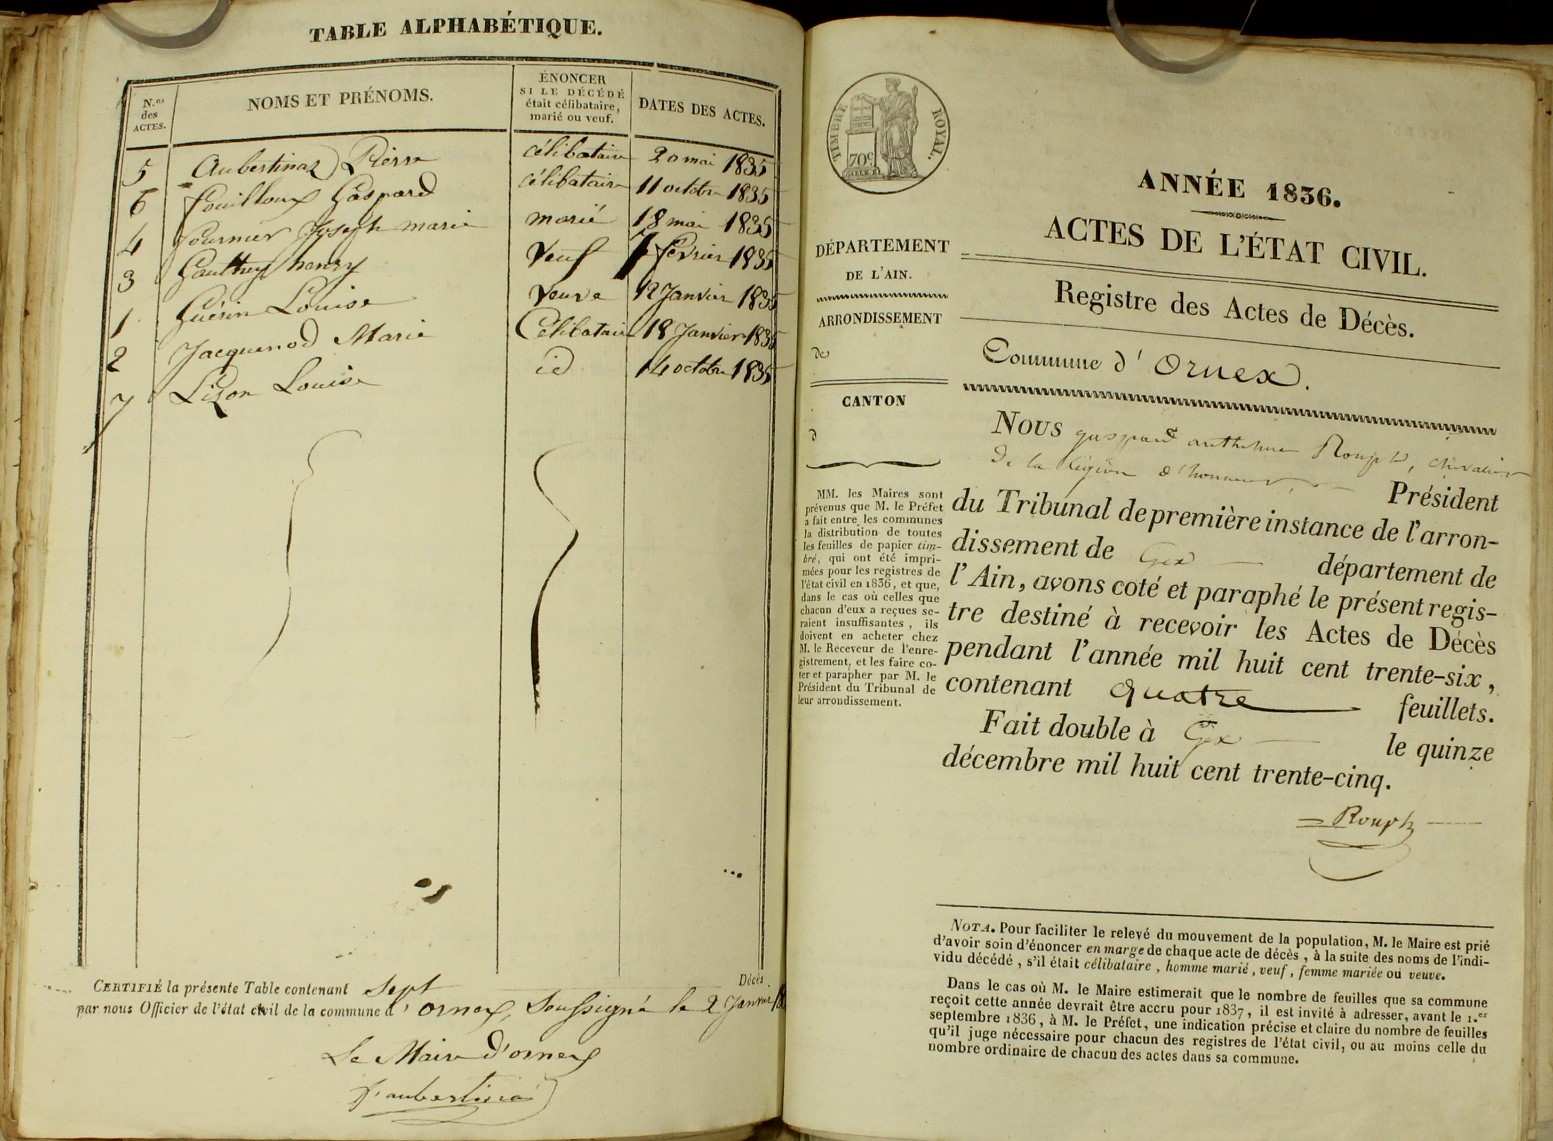 TABLE ALPHABÉTIQUE.
N.os des ACTES.
NOMS ET PRÉNOMS.
ÉNONCER SI LE DÉCÉDÉ était célibataire, marié ou veuf.
DATES DES ACTES.
5 Aubertinaz Pierre célibataire 20 mai 1835
6 Fouilloux Gaspard célibataire 11 octobre 1835
4 Fournier Joseph marie marié 18 mai 1835
3 Gauthey henry Veuf 7 février 1835
1 Guérin Louise Veuve 12 Janvier 1835
2 Jacquenod Marie Célibataire 18 Janvier 1835
7 Lizon Louise id 14 octobre 1835
CERTIFIÉ la présente Table contenant sept Décès
par nous Officier de l'état civil de la commune d'ornex, Soussigné le 2 Janvier
Le Maire d'ornex
TIMBRE ROYAL.
70c
ANNÉE 1836.
ACTES DE L'ÉTAT CIVIL.
Registre des Actes de Décès.
Commune d'Ornex.
DÉPARTEMENT
DE L'AIN.
ARRONDISSEMENT
de
CANTON
d
MM. les Maires sont
prévenus que M. le Préfet
a fait entre les communes
la distribution de toutes
les feuilles de papier tim-
bré, qui ont été impri-
mées pour les registres de
l'état civil en 1836, et que,
dans le cas où celles que
chacun d'eux a reçues se-
raient insuffisantes, ils
doivent en acheter chez
M. le Receveur de l'enre-
gistrement, et les faire co-
ter et parapher par M. le
Président du Tribunal de
leur arrondissement.
Nous gaspard anthelme Rouph, chevalier
de la légion d'honneur, Président
du Tribunal de première instance de l'arron-
dissement de Gex département de
l'Ain, avons coté et paraphé le présent regis-
tre destiné à recevoir les Actes de Décès
pendant l'année mil huit cent trente-six,
contenant quatre feuillets.
Fait double à Gex le quinze
décembre mil huit cent trente-cinq.
Rouph
NOTA. Pour faciliter le relevé du mouvement de la population, M. le Maire est prié
d'avoir soin d'énoncer en marge de chaque acte de décès, à la suite des noms de l'indi-
vidu décédé, s'il était célibataire, homme marié, veuf, femme mariée ou veuve.
Dans le cas où M. le Maire estimerait que le nombre de feuilles que sa commune
reçoit cette année devrait être accru pour 1837, il est invité à adresser, avant le 1.er
septembre 1836, à M. le Préfet, une indication précise et claire du nombre de feuilles
qu'il juge nécessaire pour chacun des registres de l'état civil, ou au moins celle du
nombre ordinaire de chacun des actes dans sa commune.